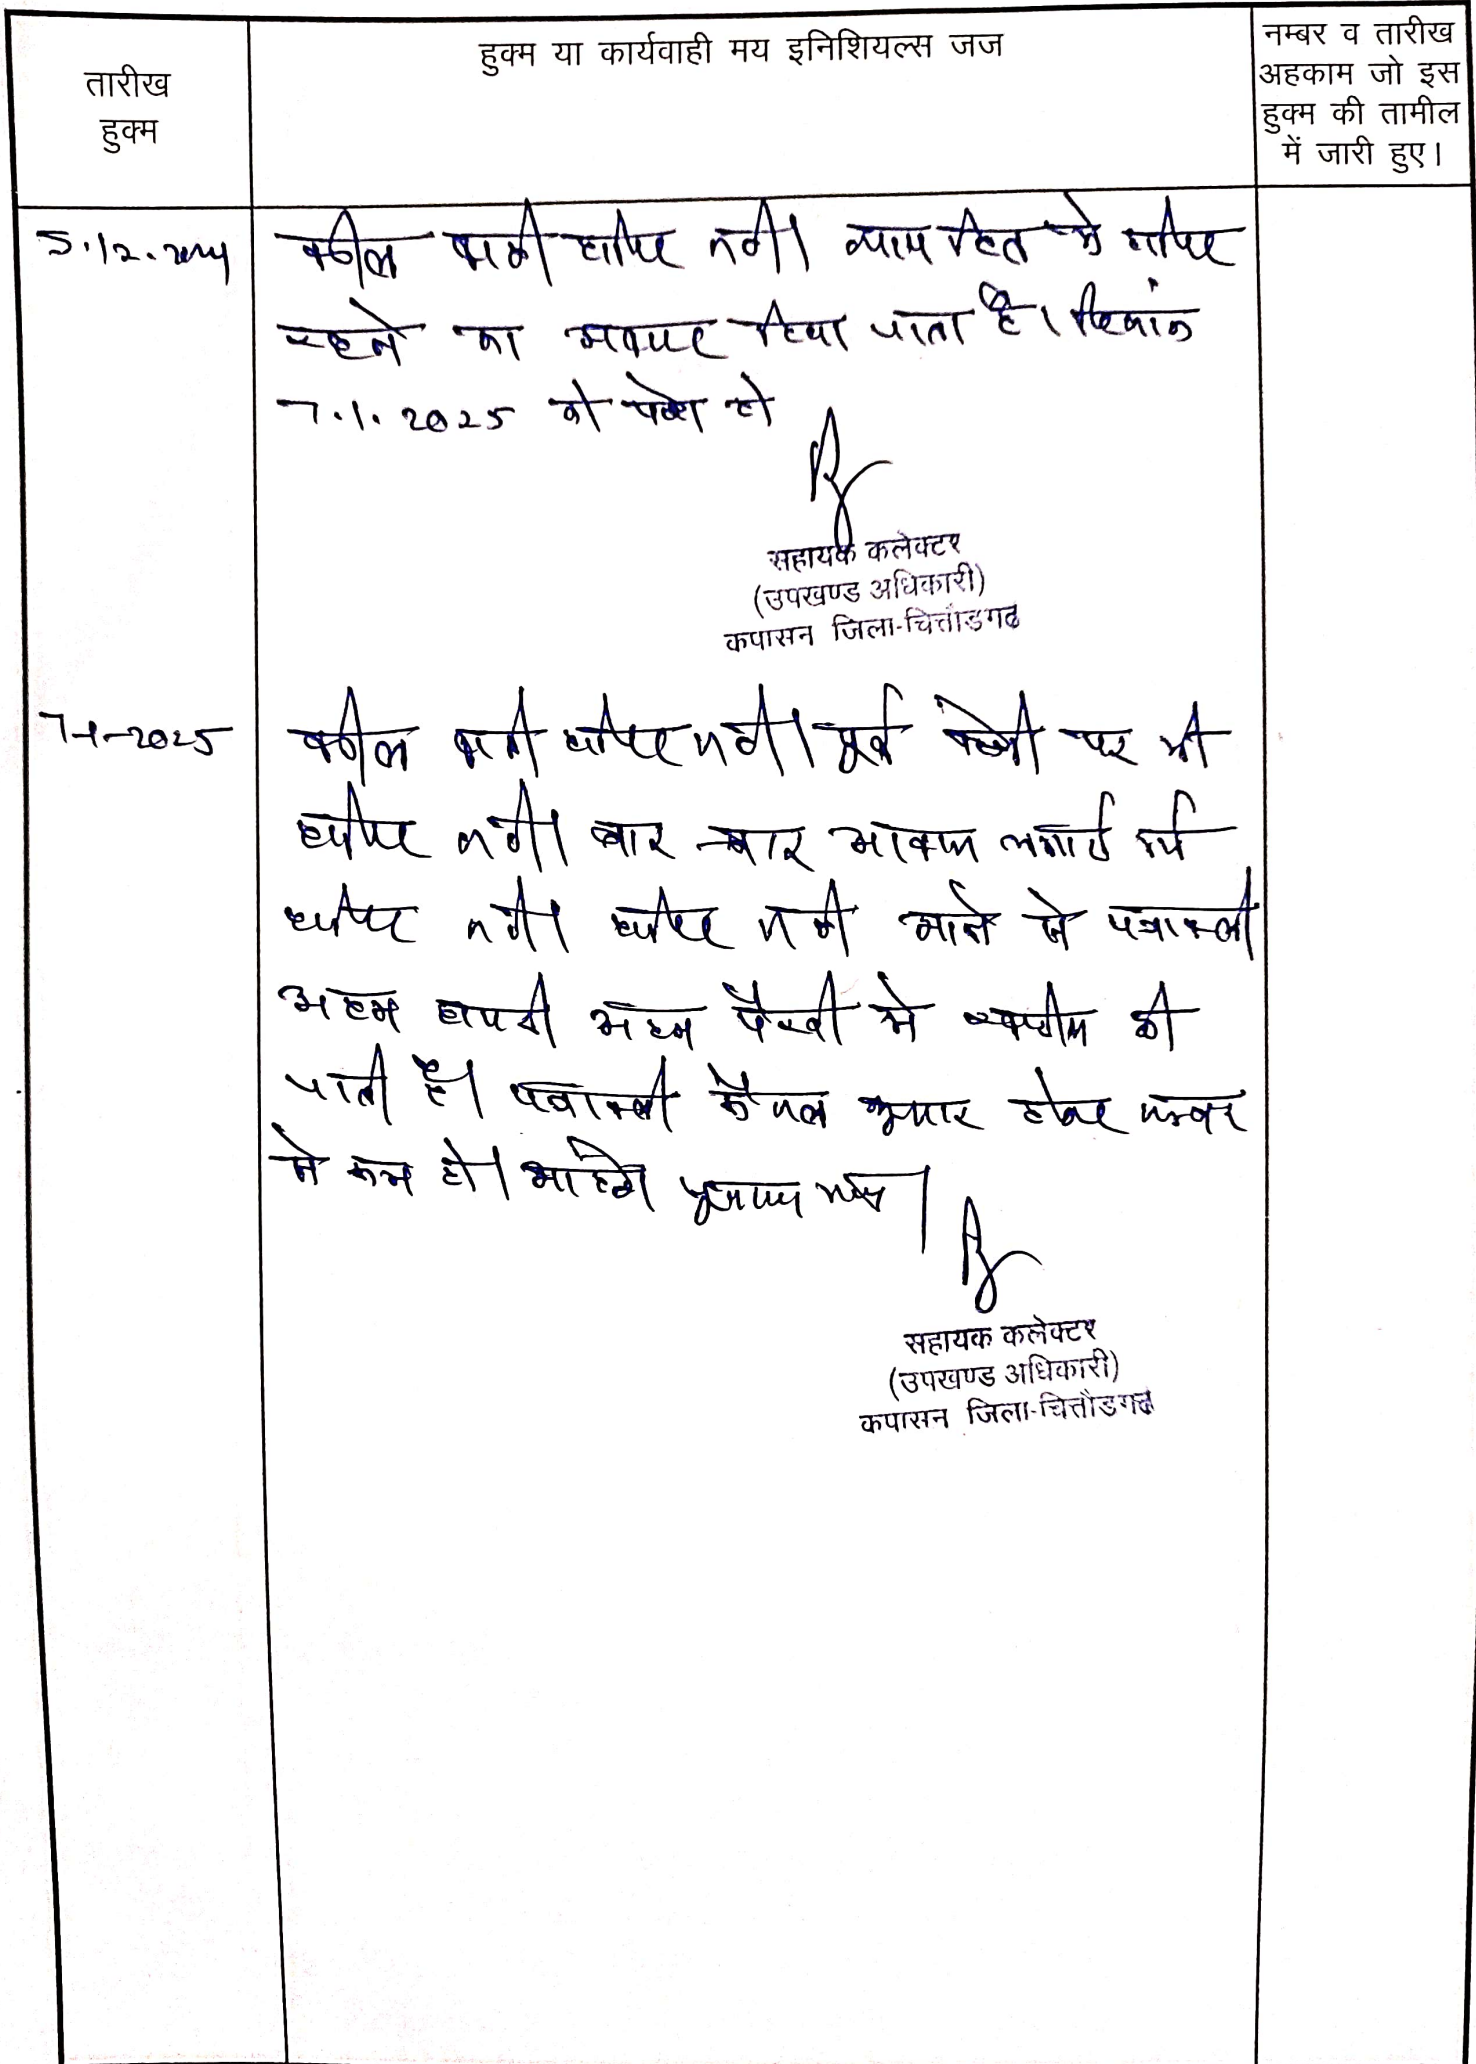 तारीख
हुक्म
हुक्म या कार्यवाही मय इनिशियल्स जज
नम्बर व तारीख
अहकाम जो इस
हुक्म की तामील
में जारी हुए।
5.12.2024 वकील प्रार्थी हाजिर नहीं। न्याय हित में हाजिर
रहने का अवसर दिया जाता है। दिनांक
7.1.2025 को पेश हो
सहायक कलेक्टर
(उपखण्ड अधिकारी)
कपासन जिला-चित्तौडगढ
7-1-2025 वकील प्रार्थी हाजिर नहीं। पूर्व पेशी पर भी
हाजिर नहीं। बार-बार आवाज लगाई गई
हाजिर नहीं। हाजिर नहीं आने से पत्रावली
अदम हाजरी अदम पैरवी में खारीज की
जाती है। पत्रावली फैसल शुमार होकर नम्बर
से कम हो। आदेश सुनाया गया।
सहायक कलेक्टर
(उपखण्ड अधिकारी)
कपासन जिला-चित्तौडगढ